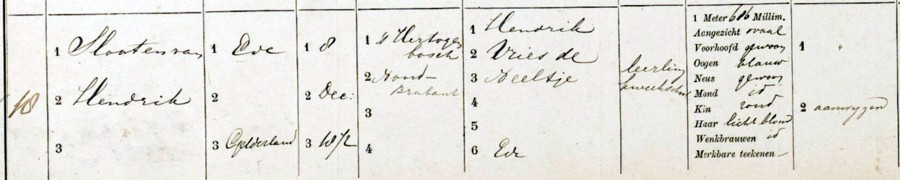 18
1 Slooten van
2 Hendrik
3
1 Ede
2
3 Gelderland
1 8
2 Dec:
3 1872
1 's Hertogen
bosch
2 Noord-
Brabant
3
4
1 Hendrik
2 Vries de
3 Neeltje
4
5
6 Ede
leerling
kweekschool
1 Meter 686 Millim.
Aangezicht ovaal
Voorhoofd gewoon
Oogen blauw
Neus gewoon
Mond id
Kin rond
Haar lichtblond
Wenkbrauwen id
Merkbare teekenen -
1 "
2 aanwijzend